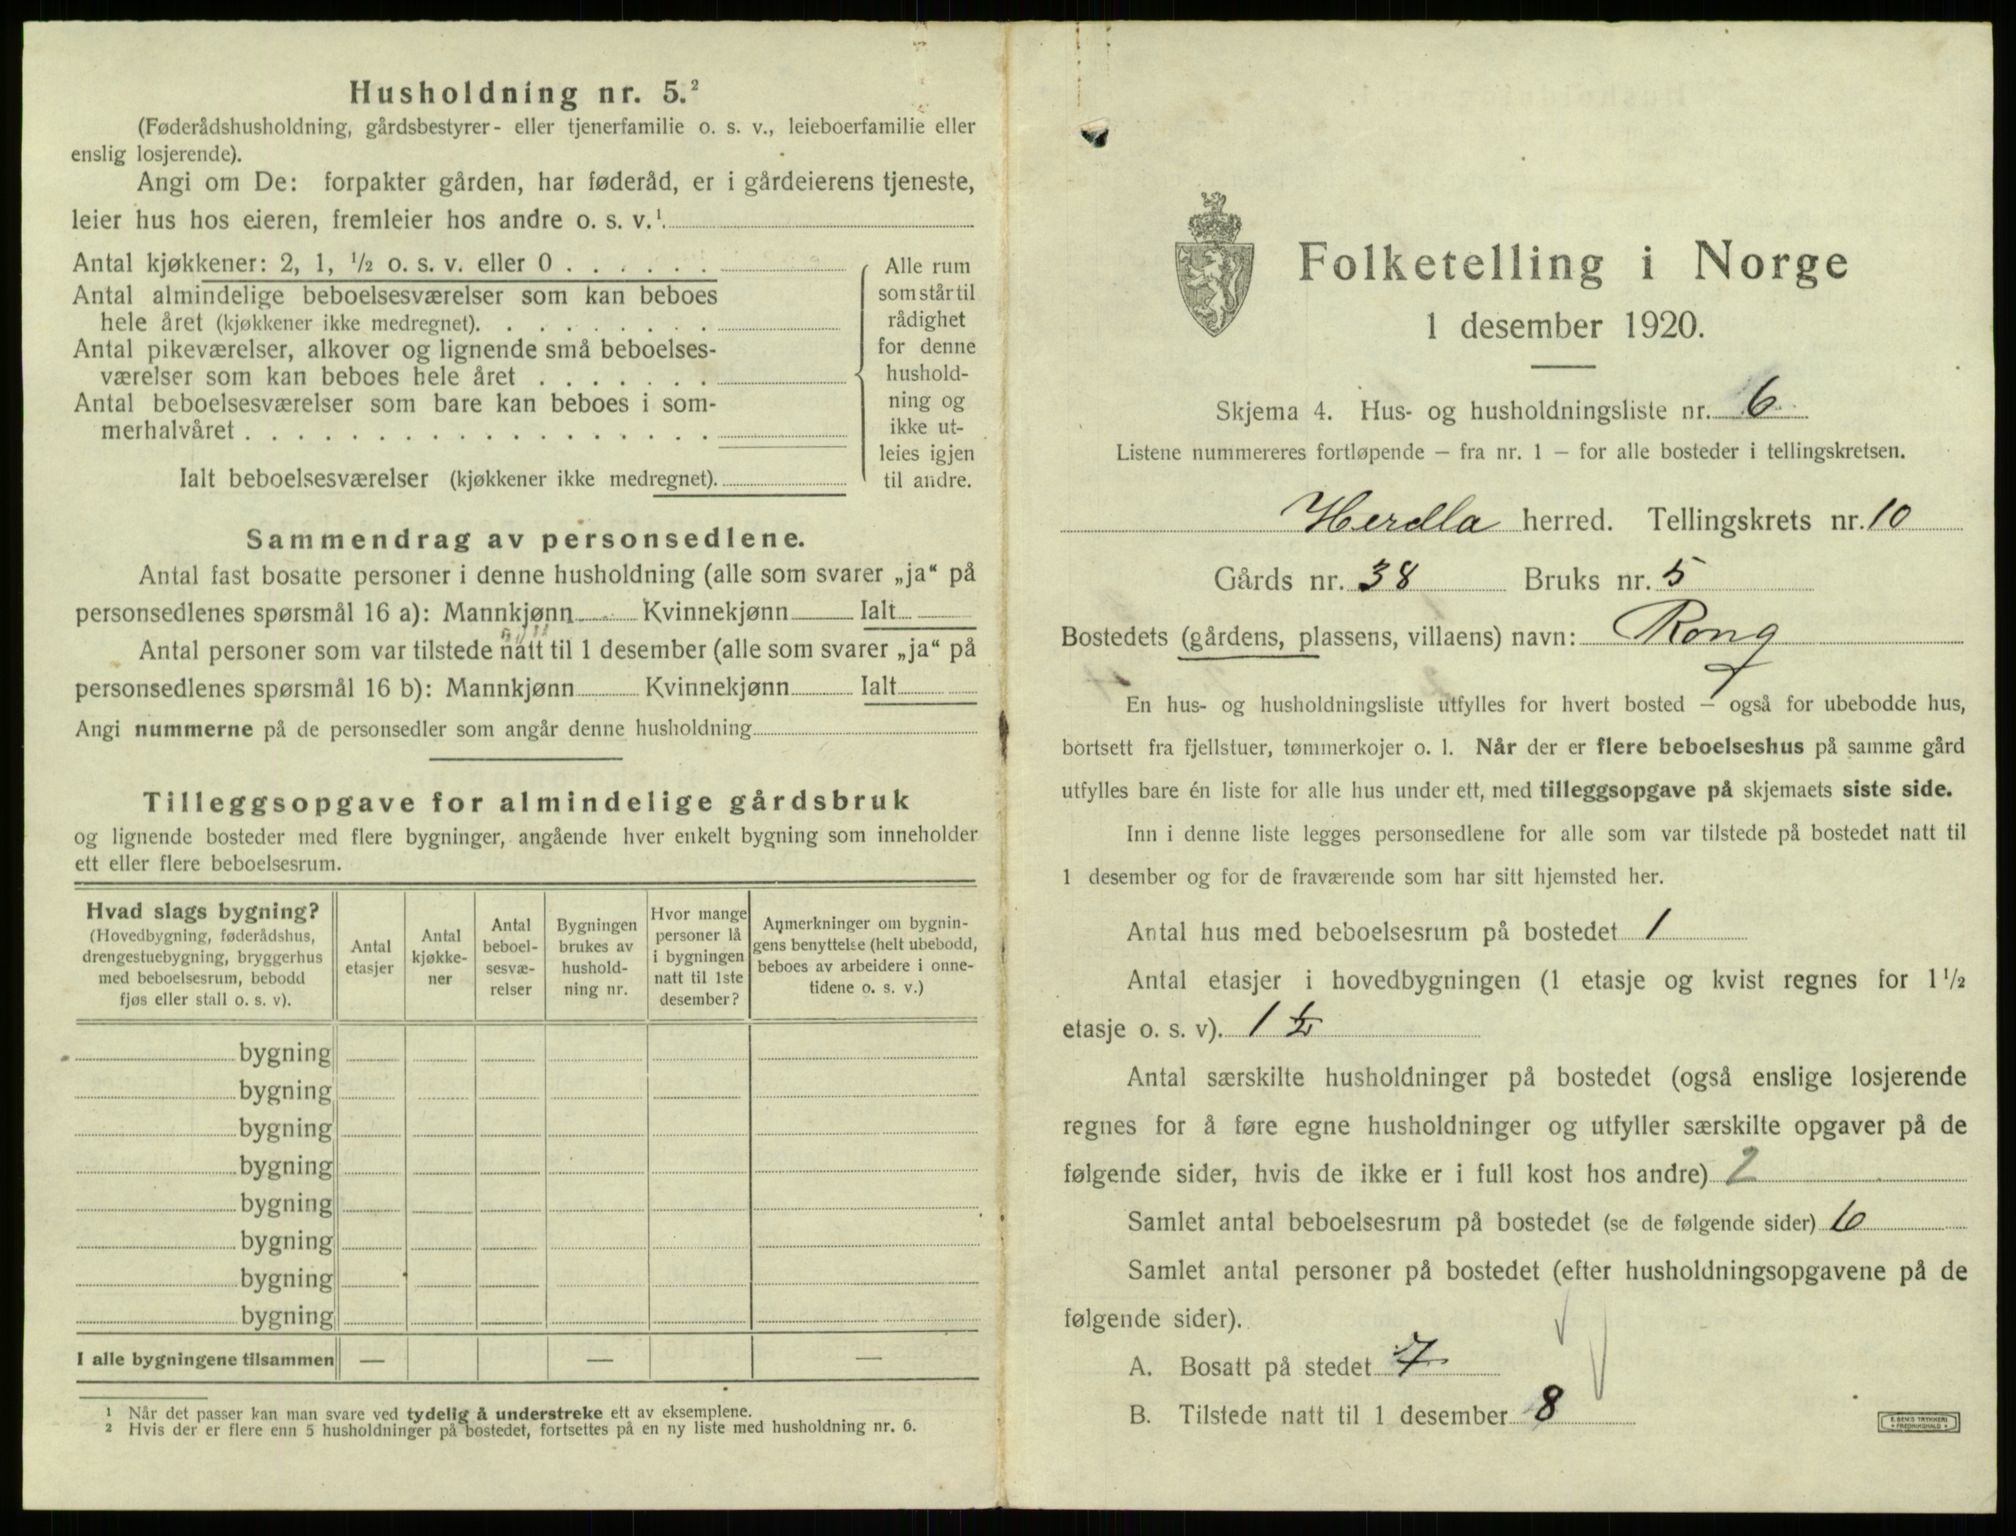 Husholdning nr. 5.²
(Føderådshusholdning, gårdsbestyrer- eller tjenerfamilie o. s. v., leieboerfamilie eller
enslig losjerende).
Angi om De: forpakter gården, har føderåd, er i gårdeierens tjeneste,
leier hus hos eieren, fremleier hos andre o. s. v.¹
Antal kjøkkener: 2, 1, ½ o. s. v. eller 0 . . . . . .
Antal almindelige beboelsesværelser som kan beboes
hele året (kjøkkener ikke medregnet). . . . . . . . .
Antal pikeværelser, alkover og lignende små beboelses-
værelser som kan beboes hele året . . . . . . .
Antal beboelsesværelser som bare kan beboes i som-
merhalvåret . . . . . . . . . . . . . . . . . .
Ialt beboelsesværelser (kjøkkener ikke medregnet).
Alle rum
som står til
rådighet
for denne
hushold-
ning og
ikke ut-
leies igjen
til andre.
Sammendrag av personsedlene.
Antal fast bosatte personer i denne husholdning (alle som svarer „ja“ på
personsedlenes spørsmål 16 a): Mannkjønn Kvinnekjønn Ialt
Antal personer som var tilstede natt til 1 desember (alle som svarer „ja“ på
personsedlenes spørsmål 16 b): Mannkjønn Kvinnekjønn Ialt
Angi nummerne på de personsedler som angår denne husholdning
Tilleggsopgave for almindelige gårdsbruk
og lignende bosteder med flere bygninger, angående hver enkelt bygning som inneholder
ett eller flere beboelsesrum.
Hvad slags bygning?
(Hovedbygning, føderådshus,
drengestuebygning, bryggerhus
med beboelsesrum, bebodd
fjøs eller stall o. s. v).
Antal
etasjer
Antal
kjøkke-
ner
Antal
beboel-
sesvæ-
relser
Bygningen
brukes av
hushold-
ning nr.
Hvor mange
personer lå
i bygningen
natt til 1ste
desember?
Anmerkninger om bygnin-
gens benyttelse (helt ubebodd,
beboes av arbeidere i onne-
tidene o. s. v.)
bygning
bygning
bygning
bygning
bygning
bygning
bygning
bygning
I alle bygningene tilsammen — — —
¹ Når det passer kan man svare ved tydelig å understreke ett av eksemplene.
² Hvis der er flere enn 5 husholdninger på bostedet, fortsettes på en ny liste med husholdning nr. 6.
Folketelling i Norge
1 desember 1920.
Skjema 4. Hus- og husholdningsliste nr. 6
Listene nummereres fortløpende — fra nr. 1 — for alle bosteder i tellingskretsen.
Herdla herred. Tellingskrets nr. 10
Gårds nr. 38 Bruks nr. 5
Bostedets (gårdens, plassens, villaens) navn: Rong
En hus- og husholdningsliste utfylles for hvert bosted — også for ubebodde hus,
bortsett fra fjellstuer, tømmerkojer o. l. Når der er flere beboelseshus på samme gård
utfylles bare én liste for alle hus under ett, med tilleggsopgave på skjemaets siste side.
Inn i denne liste legges personsedlene for alle som var tilstede på bostedet natt til
1 desember og for de fraværende som har sitt hjemsted her.
Antal hus med beboelsesrum på bostedet 1
Antal etasjer i hovedbygningen (1 etasje og kvist regnes for 1 ½
etasje o. s. v). 1 ½
Antal særskilte husholdninger på bostedet (også enslige losjerende
regnes for å føre egne husholdninger og utfyller særskilte opgaver på de
følgende sider, hvis de ikke er i full kost hos andre) 2
Samlet antal beboelsesrum på bostedet (se de følgende sider) 6
Samlet antal personer på bostedet (efter husholdningsopgavene på de
følgende sider).
A. Bosatt på stedet 7
B. Tilstede natt til 1 desember 8
E. SEMS TRYKKERI
FREDRIKSHALD